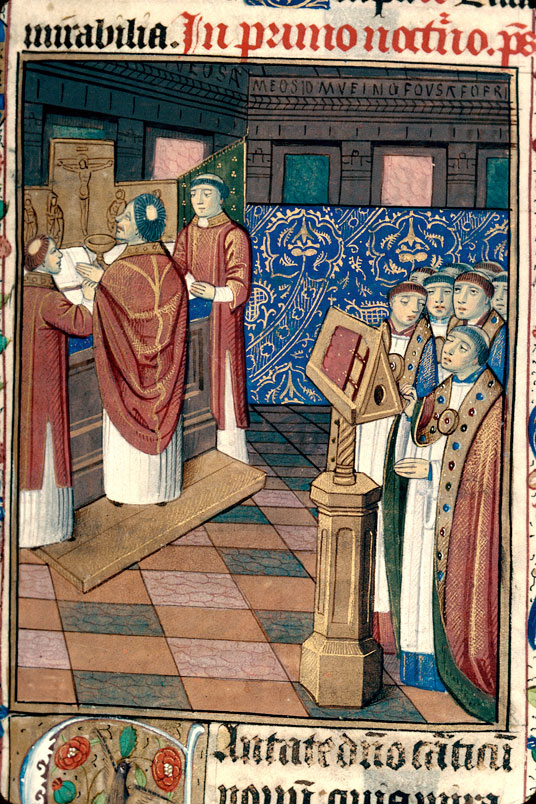 mirabilia. In primo noct̃no. p̃s
MEOSIDMVEINOFOVSAFOPRI
CAntate dño cãticũ
novũ: quia mira